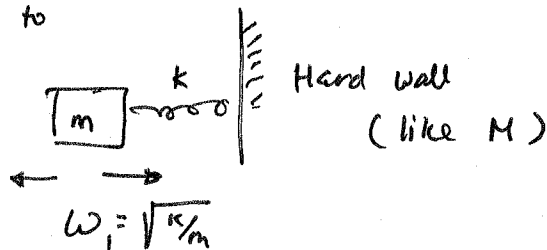 to
k
Hard wall
m
(like M)
ω₁ = √k/m